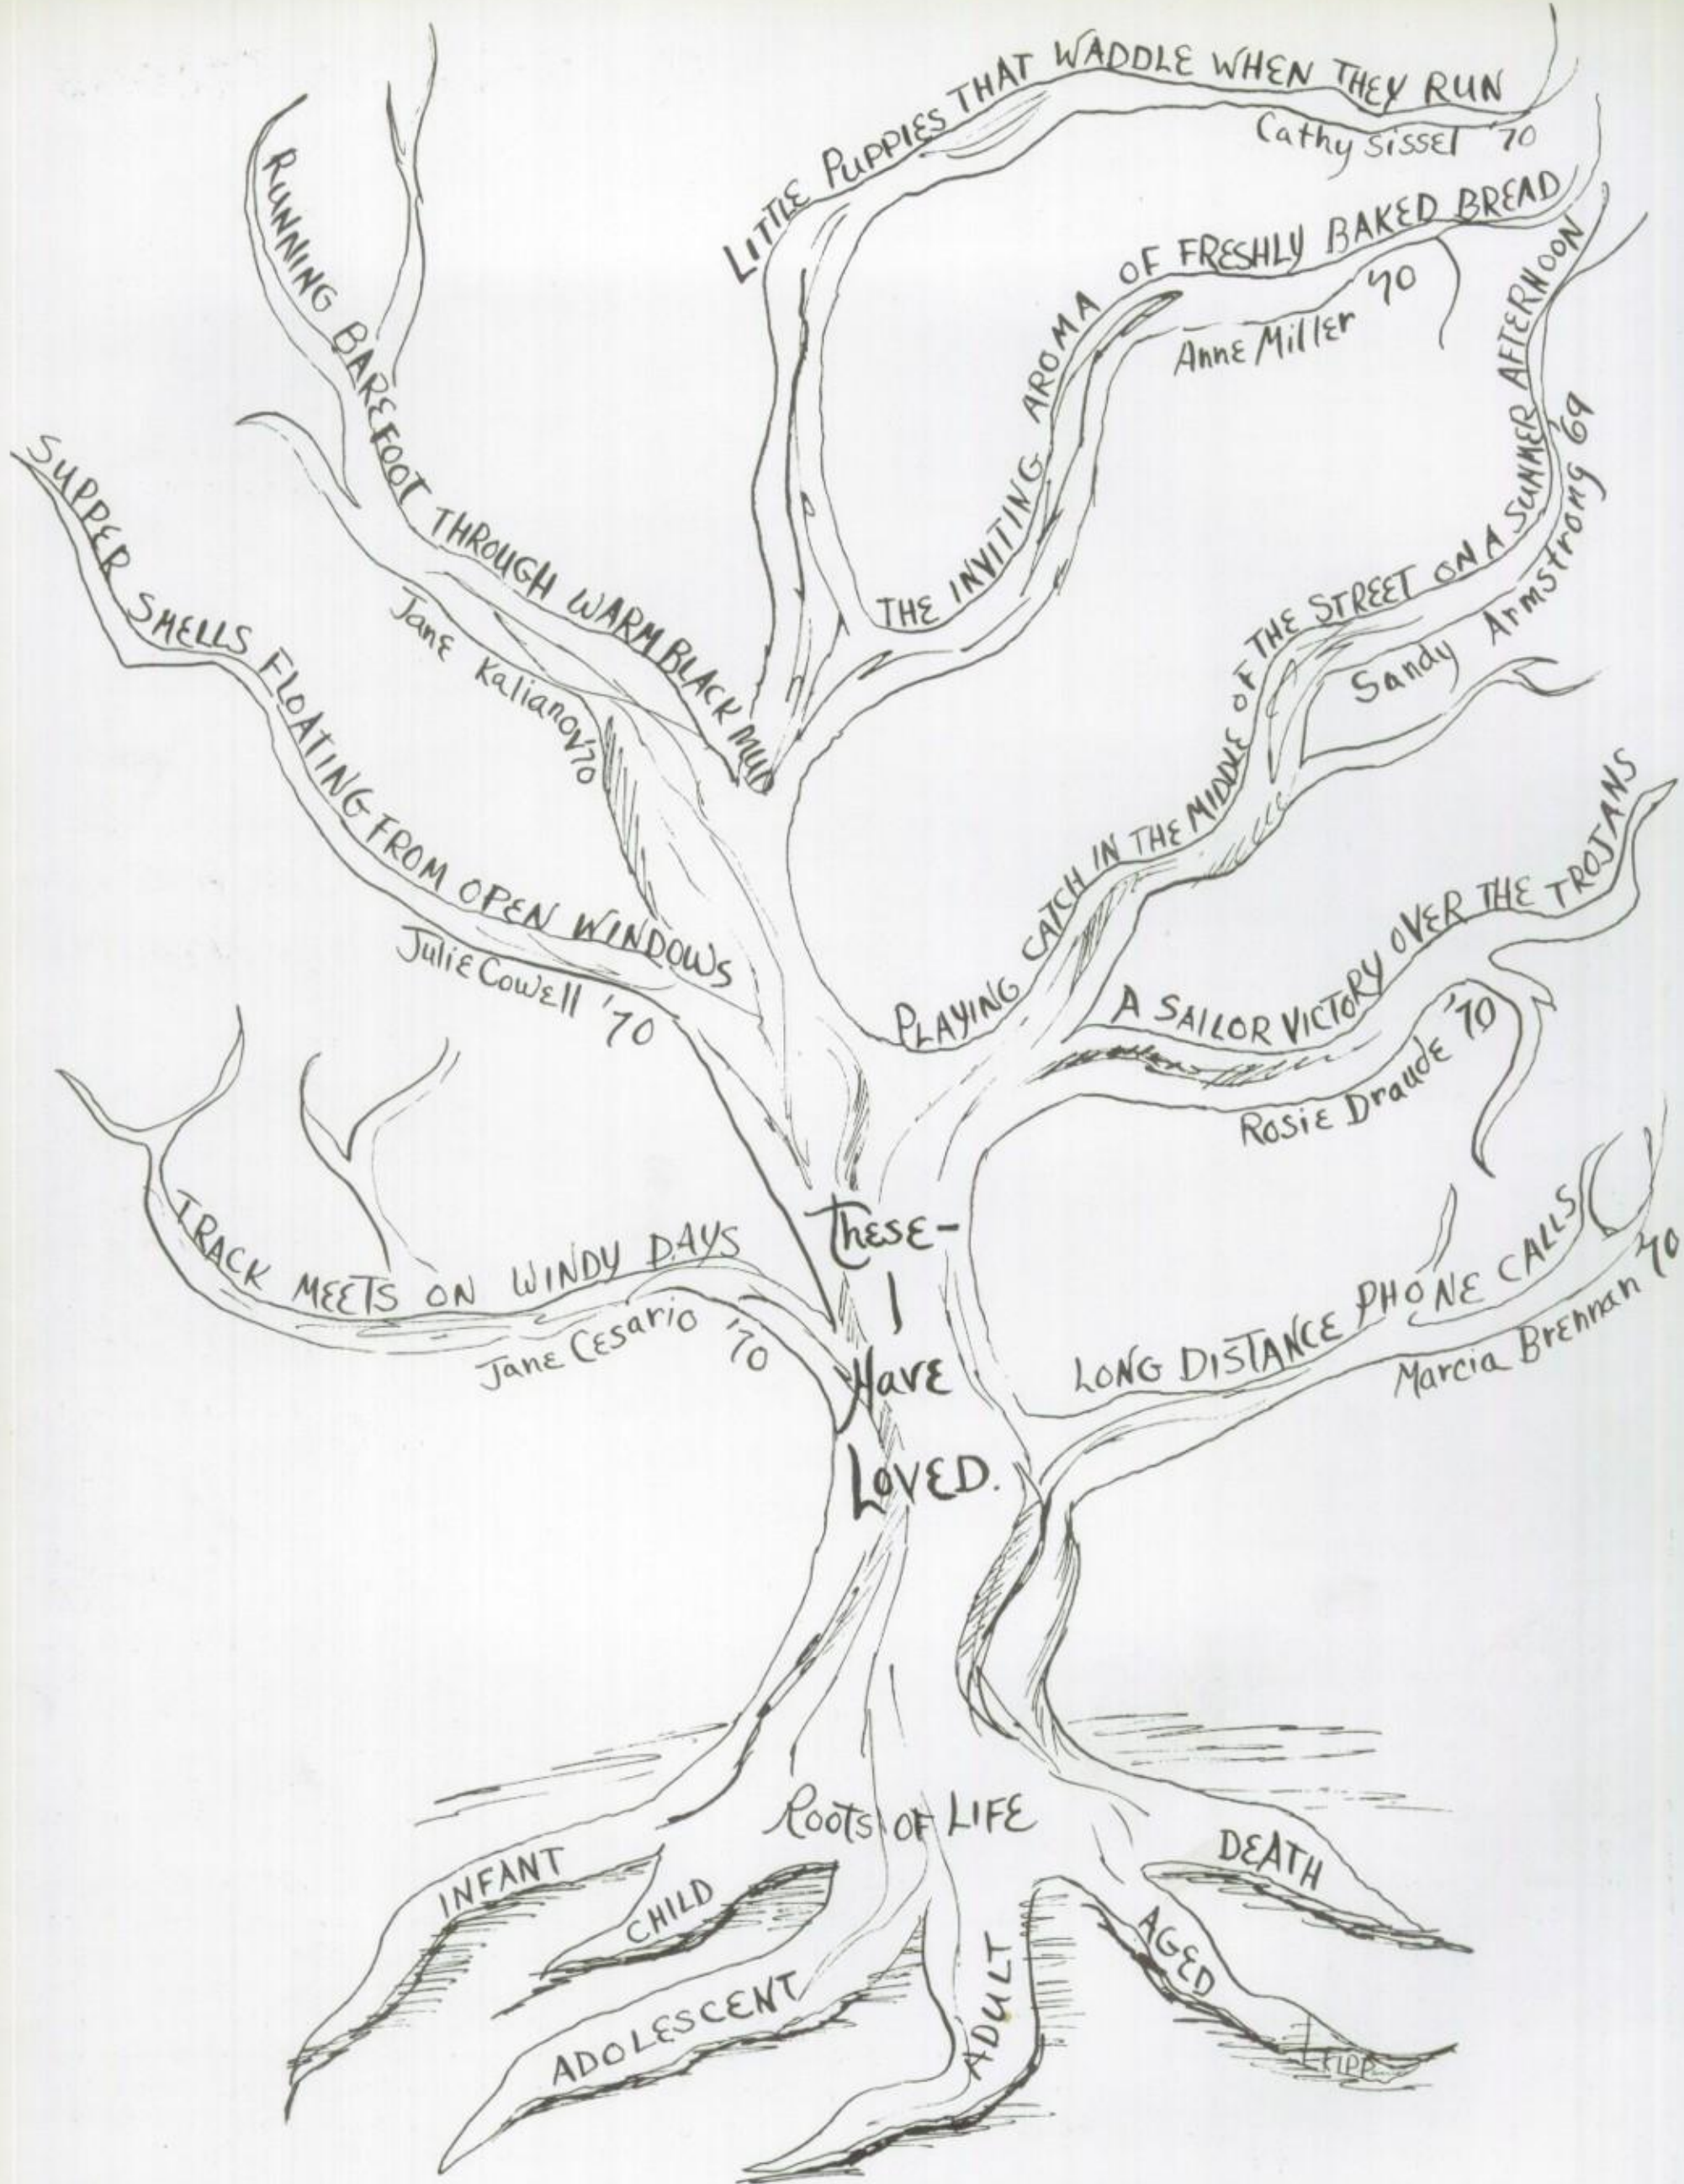 LITTLE PUPPIES THAT WADDLE WHEN THEY RUN
Cathy Sissel '70
RUNNING BAREFOOT THROUGH WARM BLACK MUD
Jane Kalianov '70
THE INVITING AROMA OF FRESHLY BAKED BREAD
Anne Miller '70
SUPPER SMELLS FLOATING FROM OPEN WINDOWS
Julie Cowell '70
PLAYING CATCH IN THE MIDDLE OF THE STREET ON A SUMMER AFTERNOON
Sandy Armstrong '69
A SAILOR VICTORY OVER THE TROJANS
Rosie Draude '70
TRACK MEETS ON WINDY DAYS
Jane Cesario '70
LONG DISTANCE PHONE CALLS
Marcia Brennan '70
These-
I
Have
LOVED.
Roots OF LIFE
INFANT
CHILD
ADOLESCENT
ADULT
AGED
DEATH